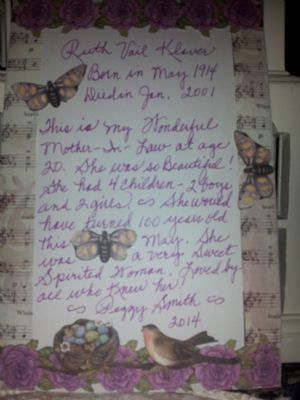 Ruth Vail Klover
Born in May 1914
Died in Jan. 2001
This is my Wonderful
Mother-In-Law at age
20. She was so Beautiful!
She had 4 children - 2 boys
and 2 girls. She would
have turned 100 years old
this May. She
was a very Sweet
Spirited Woman. Loved by
all who knew her!
Peggy Smith
2014